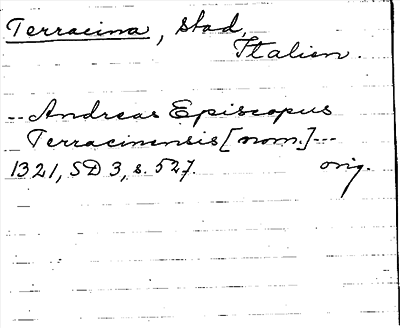 Terracina, stad,
Italien.
-- Andreas Episcopus
Terracinensis [nom.] ---
1321, SD 3, s. 527. orig.